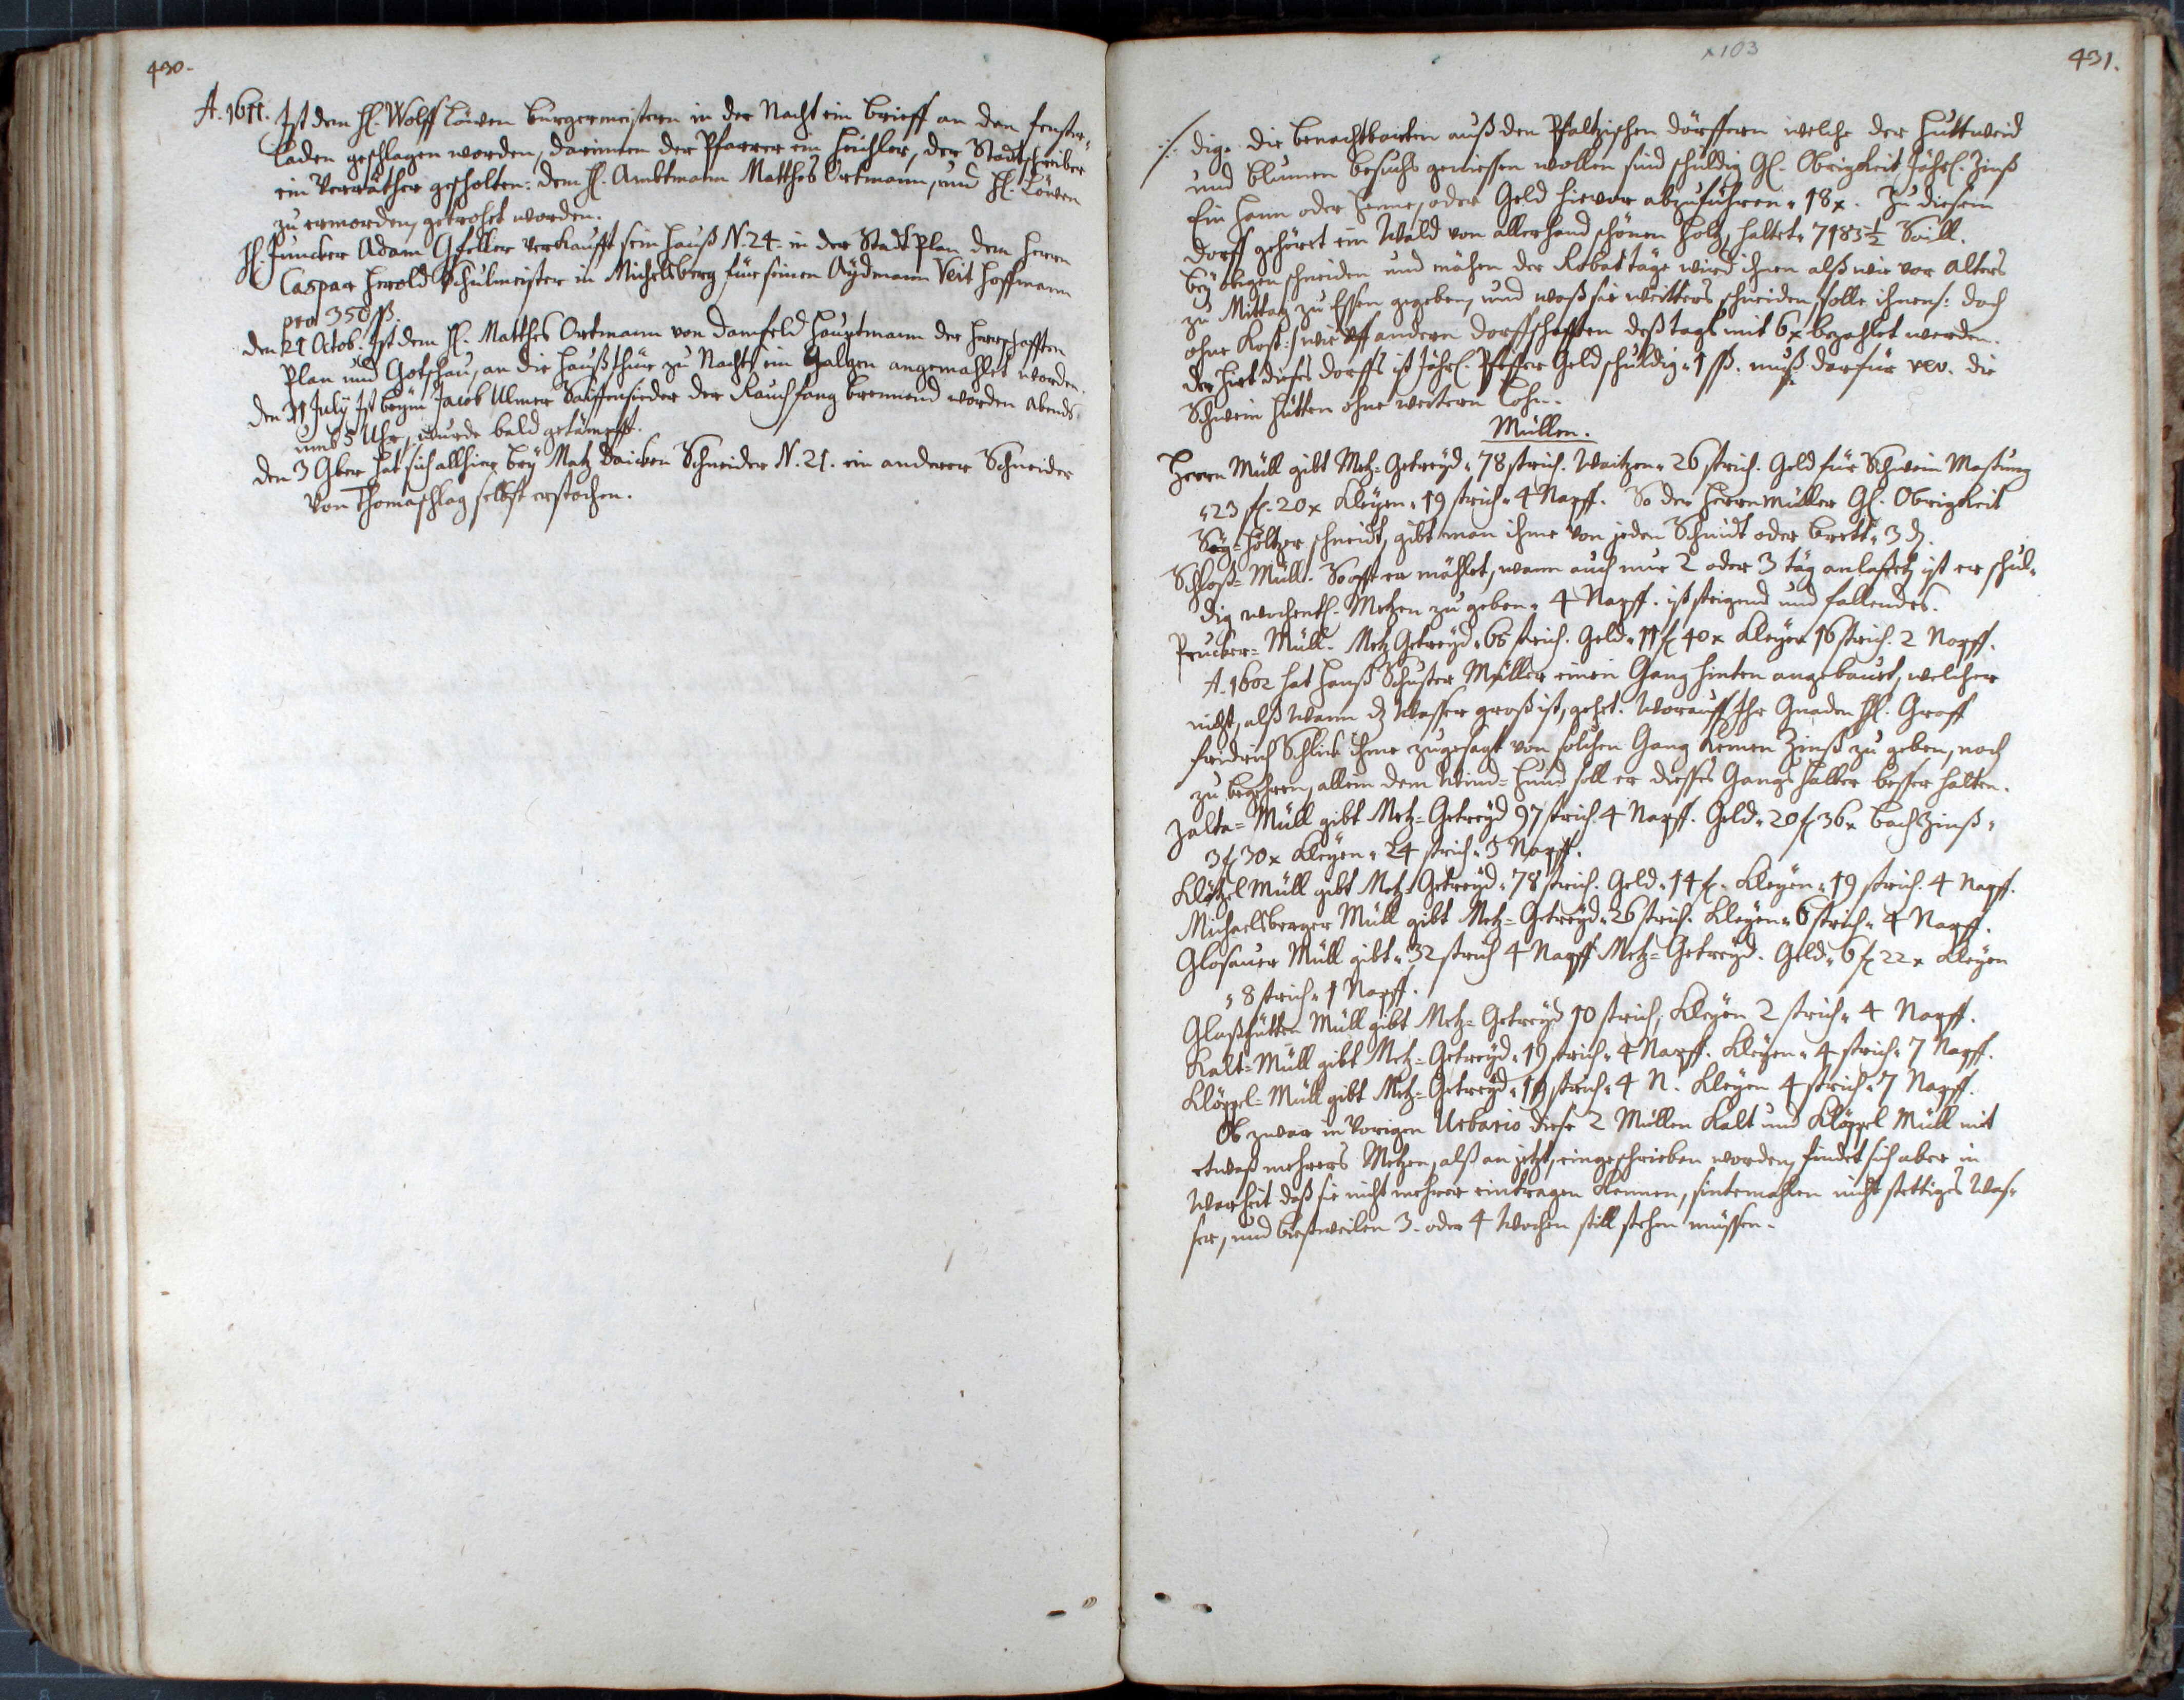 430.
A. 1611. Ist dem H. Wolff Löwen Burgermeistern in der Nacht ein brieff an den fenster„
laden geschlagen worden, darinnen der Pfarrer ein Heuchler, der Stadtschreiber
ein Verräther gescholten: dem H. Ambtmann Matthes Ortmann, und H. Löwen
zu ermorden, getrohet worden.
H. Juncker Adam Gfeller verkaufft sein Hauß N. 24. in der Stadt Plan dem Herrn
Caspar Herold Schulmeister in Michelsberg für seinen Aydmann Veit Hoffmann
pro 350 ß.
den 21 Octob. Ist dem H. Matthes Ortmann von Damfeld Hauptmann der Herrschafften
Plan und Gotschau, an die Haußthür zu Nachts ein Galgen angemahlet worden.
den 31 July Ist beym Jacob Ulmer Saiffensieder der Rauchfang brennend worden Abends
umb 5 Uhr, wurde bald getämpfft.
den 3 9ber hat sich allhier bey Matz Daicken Schneider N. 21. ein anderer Schneider
von Thomaschlag selbst erstochen.
x103
431.
·/. dig. die benachtbarten auß den Pfaltzischen dörffern welche der Huttweid
und blumen besuchs geniessen wollen sind schuldig G. Obrigkeit Jährl. Zinß
Ein Hann oder Henne, oder Geld hievor abzuführen „ 18 x. Zu diesem
Dorff gehöret ein Wald von allerhand schönen Holtz, haltet „ 7183½ Saill.
bey obigen schneiden und mähen der Robat täge wird ihnen alß wie vor Alters
zu Mittag zu Essen gegeben, und waß sie weitters schneiden, solle ihnen /: doch
ohne Kost :/ wie uff andern dorffschafften deß tags mit 6 x bezahlet werden.
der Hirt dieses dorffs ist Jährl. Pfeffer Geld schuldig „ 1 ß. muß darfür rev. die
Schwein hütten ohne weitern Lohn.
Müllen.
Herrn Müll gibt Metz-Getreyd „ 78 strich. Waitzen „ 26 strich. Geld für Schwein Mastung
„ 23 f. 20 x Kleyen „ 19 strich „ 4 Napff. So der Herrnmüller G. Obrigkeit
Säg-Höltzer schneidt, gibt man ihme von jeden Schnidt oder Brett „ 3 d.
Schloß-Müll. So offt er mahlet, wann auch nur 2 oder 3 täg anlasset, ist er schul„
dig wochentl. Metzen zu geben „ 4 Napff. ist steigend und fallendes.
Prucker-Müll. Metz Getreyd „ 65 strich. Geld „ 11 f 40 x Kleyen 16 strich. 2 Napff.
A. 1602 hat Hanß Schuster Müller einen Gang hinten angebaut, welcher
nicht, alß wann dz Wasser groß ist, gehet. Worauff Ihr Gnaden H. Graff
Friedrich Schlick ihme zugesagt von solchen Gang keinen Zinß zu geben, noch
zu begehren, allein dem Wind-Hund soll er diesses Gangs halber besser halten.
Zalta-Müll gibt Metz-Getreyd 97 strich 4 Napff. Geld „ 20 f 36 x bach Zinß „
3 f 30 x Kleyen „ 24 strich „ 3 Napff.
Klötzel Müll gibt Metz-Getreyd „ 78 strich. Geld „ 14 f. Kleyen „ 19 strich. 4 Napff.
Michaelsberger Müll gibt Metz-Getreyd „ 26 strich. Kleyen „ 6 strich „ 4 Napff.
Glosauer Müll gibt „ 32 strich 4 Napff Metz-Getreyd. Geld „ 6 f 22 x Kleyen
„ 8 strich „ 1 Napff.
Glaßhütten Müll gibt Metz-Getreyd 10 strich, Kleyen 2 strich „ 4 Napff.
Kalt-Müll gibt Metz-Getreyd „ 19 strich „ 4 Napff. Kleyen „ 4 strich „ 7 Napff.
Klöppel-Müll gibt Metz-Getreyd „ 19 strich „ 4 N. Kleyen 4 strich „ 7 Napff.
Ob zwar in vorigen Urbario diese 2 Müllen Kalt und Klöppel Müll mit
etwaß mehrers Metzen, alß an jetzt, eingeschrieben worden, findet sich aber in
Warheit daß sie nicht mehrer eintragen kennen, sintemahlen nicht stettiges Was„
ser, und bißweilen 3. oder 4 Wochen still stehen müssen.